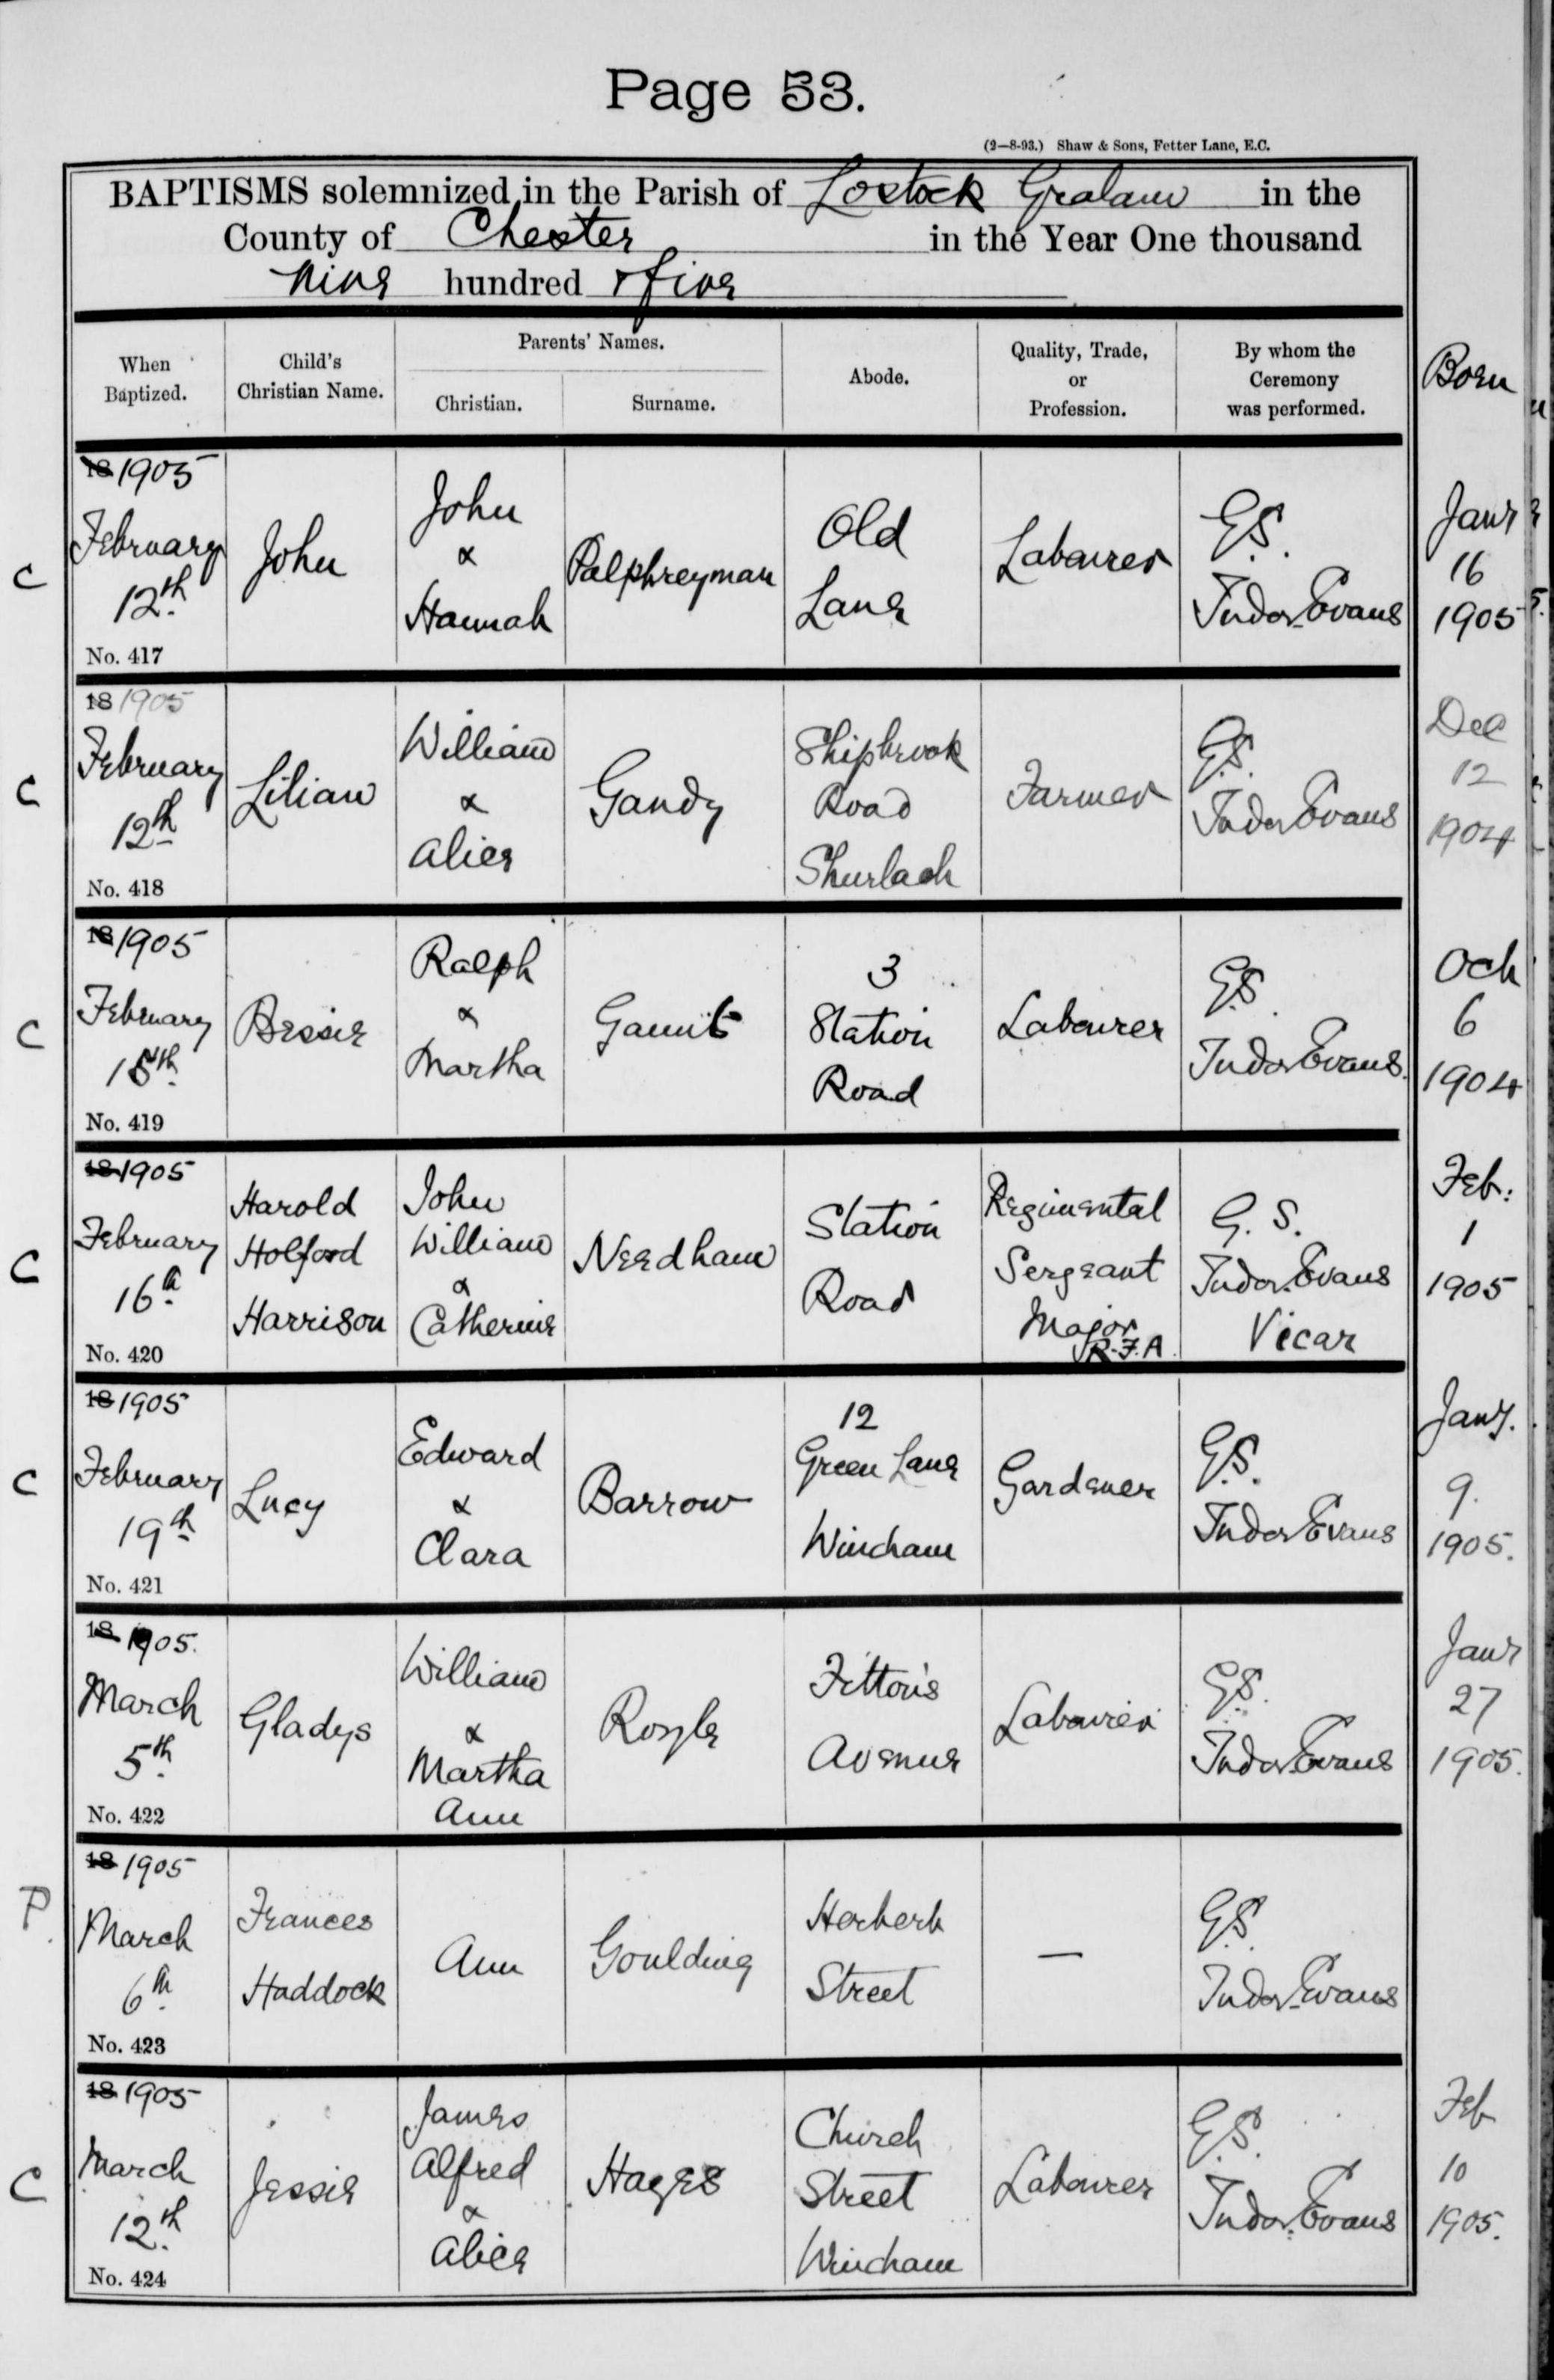 Page 53.
(2—8-93.) Shaw & Sons, Fetter Lane, E.C.
BAPTISMS solemnized in the Parish of Lostock Gralam in the
County of Chester in the Year One thousand
nine hundred & five
When Baptized.
Child's Christian Name.
Parents' Names.
Christian.
Surname.
Abode.
Quality, Trade, or Profession.
By whom the Ceremony was performed.
Born
C
18 1905
February
12th
No. 417
John
John
&
Hannah
Palphreyman
Old
Lane
Labourer
G.S.
Tudor Evans
Jany
16
1905
C
18 1905
February
12th
No. 418
Lilian
William
&
Alice
Gandy
Shipbrook
Road
Shurlach
Farmer
G.S.
Tudor Evans
Dec
12
1904
C
18 1905
February
15th
No. 419
Bessie
Ralph
&
Martha
3
Station
Road
Labourer
G.S.
Tudor Evans.
Oct
6
1904
C
18 1905
February
16th
No. 420
Harold
Holford
Harrison
John
William
&
Catherine
Needham
Station
Road
Regimental
Sergeant
Major
R.F.A.
G. S.
Tudor Evans
Vicar
Feb:
1
1905
C
18 1905
February
19th
No. 421
Lucy
Edward
&
Clara
Barrow
12
Green Lane
Wincham
Gardener
G.S.
Tudor Evans
Jany.
9.
1905.
18 1905.
March
5th
No. 422
Gladys
William
&
Martha
Ann
Royle
Fitton's
Avenue
Labourer
G.S.
Tudor Evans
Jany
27
1905.
P.
18 1905
March
6th
No. 423
Frances
Haddock
Ann
Goulding
Herbert
Street
—
G.S.
Tudor Evans
C
18 1905
March
12th
No. 424
Jessie
James
Alfred
&
Alice
Hayes
Church
Street
Wincham
Labourer
G.S.
Tudor Evans
Feb
10
1905.